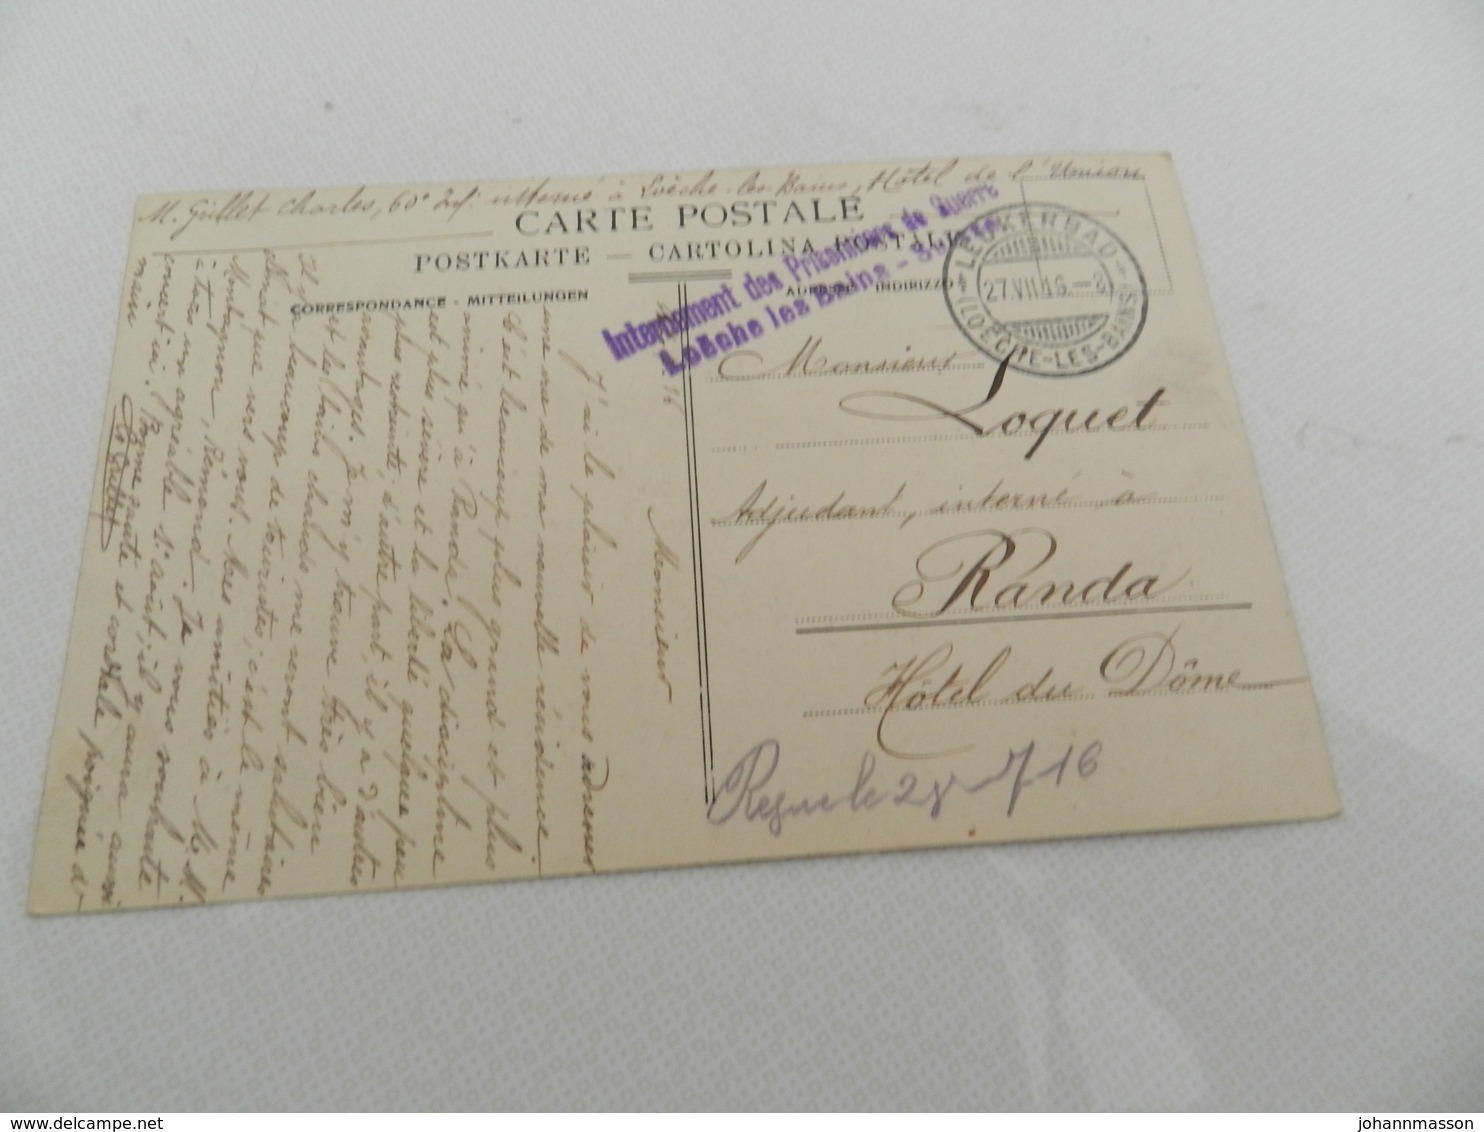 M. Guillet Charles, 60e Inf. interné à Loèche-les-Bains, Hôtel de l'Union
CARTE POSTALE
POSTKARTE — CARTOLINA POSTALE
CORRESPONDANCE - MITTEILUNGEN
ADRESSE INDIRIZZO
Internement des Prisonniers de Guerre
Loèche les Bains - Suisse
LEUKERBAD
27.VII.16.-8
(LOÈCHE-LES-BAINS)
Monsieur
Loquet
Adjudant, interné à
Randa
Hôtel du Dôme
Reçue le 29-7-16
Monsieur
J'ai le plaisir de vous adresser
une vue de ma nouvelle résidence.
C'est beaucoup plus grand et plus
animé qu'à Randa. La discipline
est plus sévère et la liberté quelque peu
plus restreinte, d'autre part, il y a d'autres
avantages. Je m'y trouve très bien
et les bains chauds me seront salutaires
Il y a beaucoup de touristes, c'est le même
que vers vous. Mes amitiés à M. M.
Montagnon, Rémond. Je vous souhaite
à tous un agréable 1er août, il y aura aussi
concert ici. Bonne santé et cordiale poignée de
main
Ch Guillet
johannmasson
delcampe.net